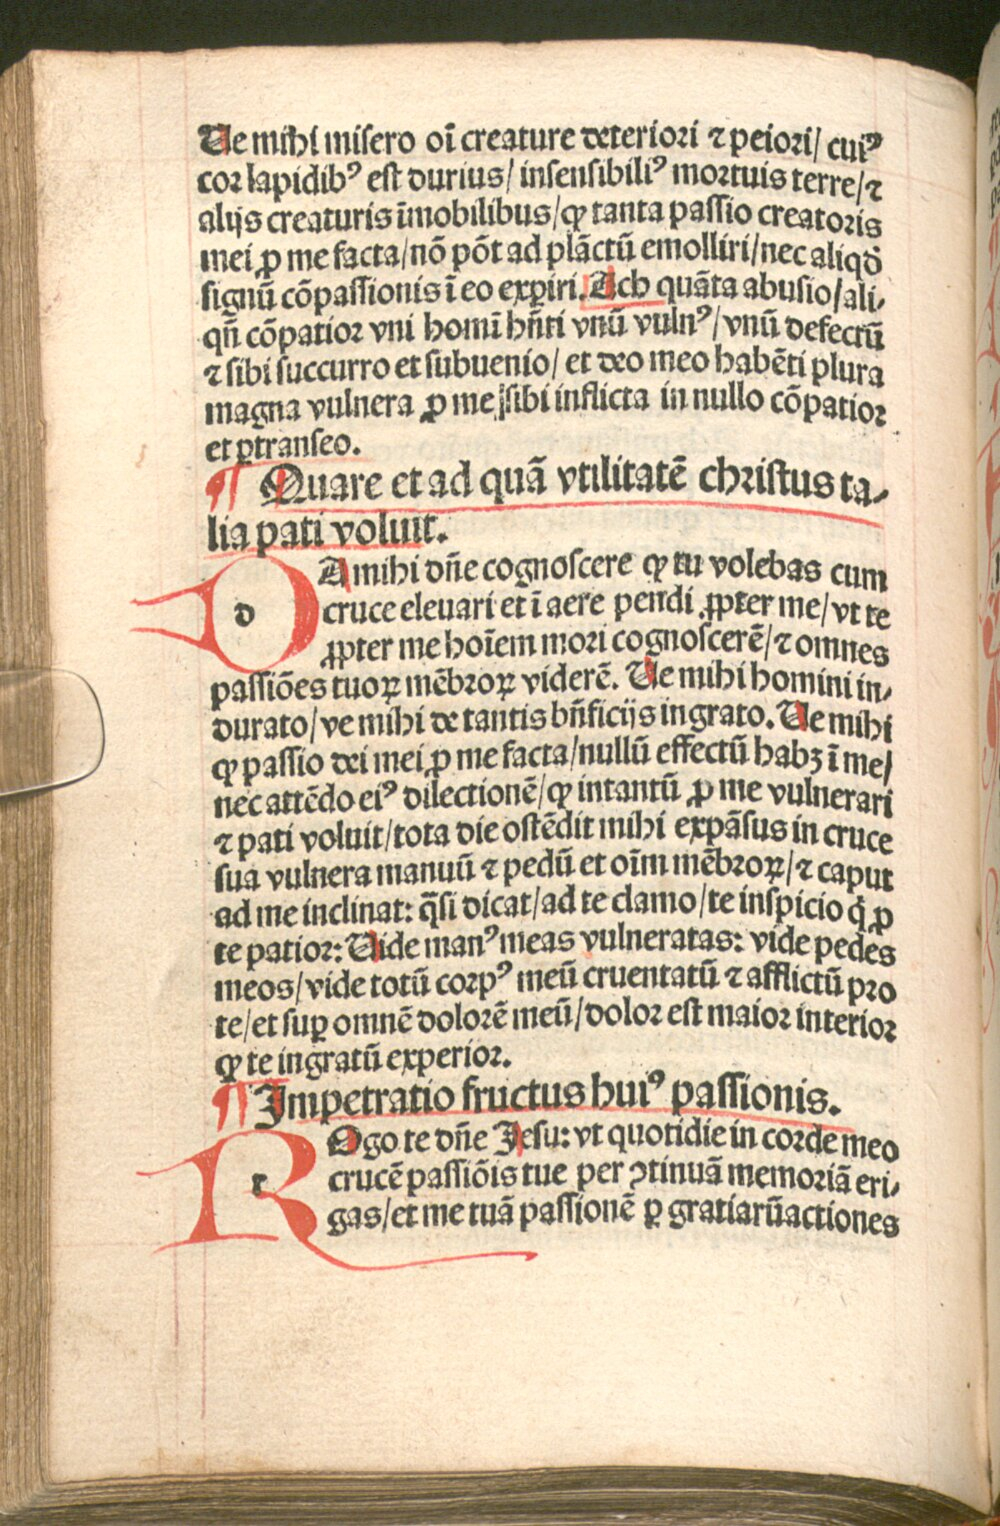 Ue mihi misero oī creature deteriori ⁊ peiori/ cuiꝰ
cor lapidibꝰ est durius/ insensibiliꝰ mortuis terre/⁊
alijs creaturis īmobilibus/ꝙ tanta passio creatoris
mei ꝓ me facta/nō pōt ad plāctū emolliri/nec aliqḋ
signū cōpassionis ī eo exꝑiri. Ach quāta abusio/ali-
qn̄ cōpatior vni homī hn̄ti vnū vulnꝰ/vnū defectū
⁊ sibi succurro et subuenio/ et deo meo habēti plura
magna vulnera ꝓ me sibi inflicta in nullo cōpatior
et ꝑtranseo.
¶ Quare et ad quā vtilitatē christus ta-
lia pati voluit.
d A mihi dn̄e cognoscere ꝙ tu volebas cum
cruce eleuari et ī aere pendi ꝓpter me/vt te
ꝓpter me hoīem mori cognoscerē/⁊ omnes
passiōes tuoꝝ mēbroꝝ viderē. Ue mihi homini in-
durato/ve mihi de tantis bn̄ficijs ingrato. Ue mihi
ꝙ passio dei mei ꝓ me facta/nullū effectū habꝫ ī me/
nec attēdo eiꝰ dilectionē/ꝙ intantū ꝓ me vulnerari
⁊ pati voluit/tota die ostēdit mihi expāsus in cruce
sua vulnera manuū ⁊ pedū et oīm mēbroꝝ/⁊ caput
ad me inclinat: q̄si dicat/ad te clamo/te inspicio q̇ ꝓ
te patior: Uide manꝰ meas vulneratas: vide pedes
meos/vide totū corpꝰ meū cruentatū ⁊ afflictū pro
te/et suꝑ omnē dolorē meū/dolor est maior interior
ꝙ te ingratū experior.
¶ Impetratio fructus huiꝰ passionis.
r Ogo te dn̄e Jesu: vt quotidie in corde meo
crucē passiōis tue per ↄtinuā memoriā eri-
gas/et me tuā passionē ꝑ gratiarūactiones